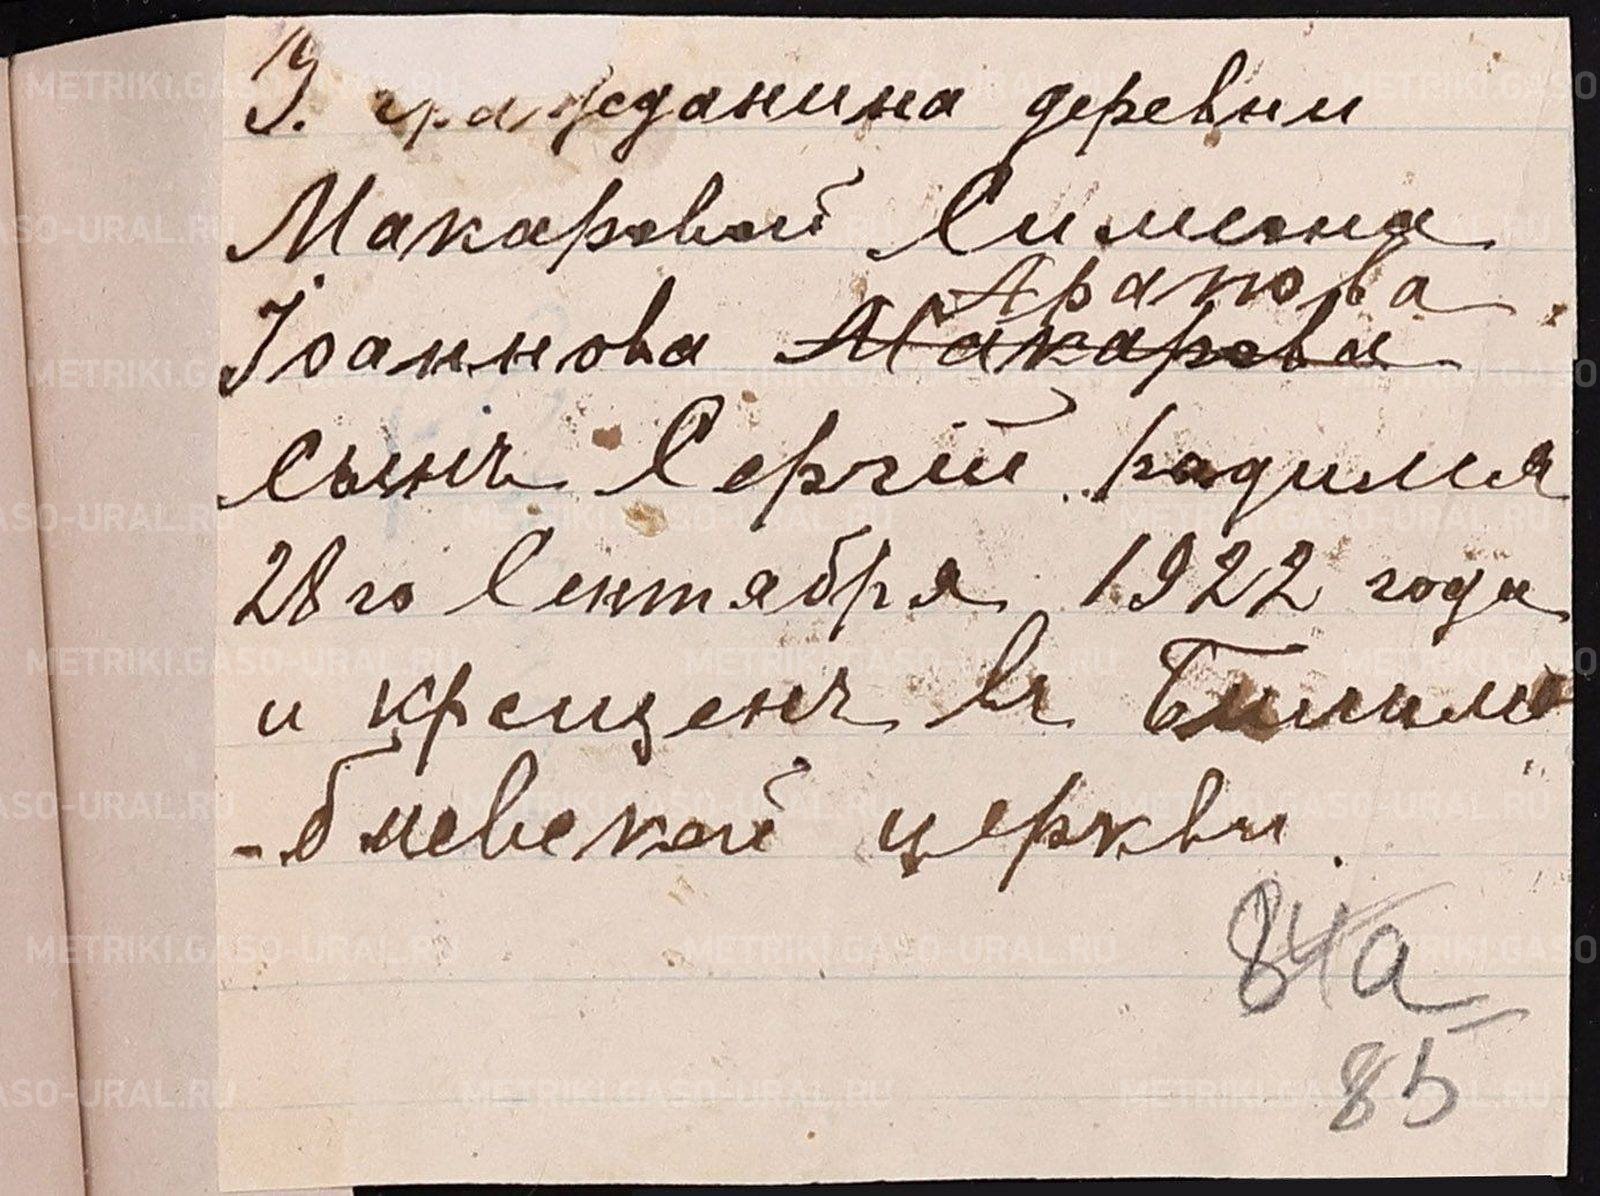 У гражданина деревни
Макаровой Симеона
Арапова
Іоаннова Макарова
сынъ Сергій родился
28 го Сентября 1922 года
и крещенъ въ Билим
-баевской церкви.
84а
85